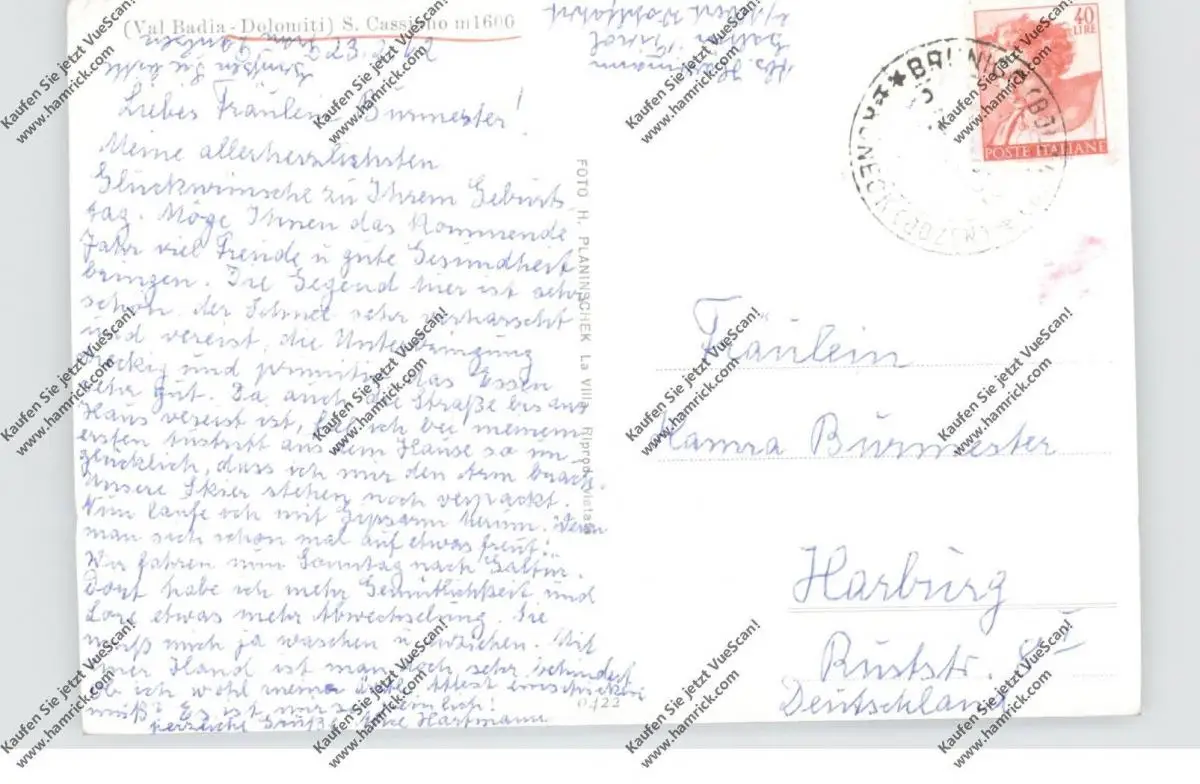 (Val Badia - Dolomiti) S. Cassiano m 1606
Liebes Fräulein Burmester!
Meine allerherzlichsten
Glückwünsche zu Ihrem Geburts-
tag. Möge Ihnen das kommende
Jahr viel Freude u gute Gesundheit
bringen. Die Gegend hier ist sehr
schön, der Schnee sehr verharscht
und vereist, die Unterbringung
und primitiv, das Essen
sehr gut. Da auch die Straße bis ans
Haus vereist ist, fiel ich bei meinem
ersten Austritt aus dem Hause so un-
glücklich, dass ich mir den Arm brach.
Unsere Skier stehen noch verpackt.
Nun laufe ich mit Gipsarm herum. Wenn
man sich schon mal auf etwas freut!
Wir fahren nun Sonntag nach Galtür.
Dort habe ich mehr Gemütlichkeit und
Lore etwas mehr Abwechselung. Sie
muß mich ja waschen u anziehen. Mit
einer Hand ist man doch sehr behindert
Ob ich wohl mein Attest einschicken
muß? Es ist mir so
herzliche Grüße Ihre Hartmann
FOTO H. PLANINSCHEK La Villa Riprod. vietata
0422
Abs. Hartmann
Galtür Tirol
40
LIRE
POSTE ITALIANE
Fräulein
Burmester
Harburg
Deutschland
Kaufen Sie jetzt VueScan!
www.hamrick.com